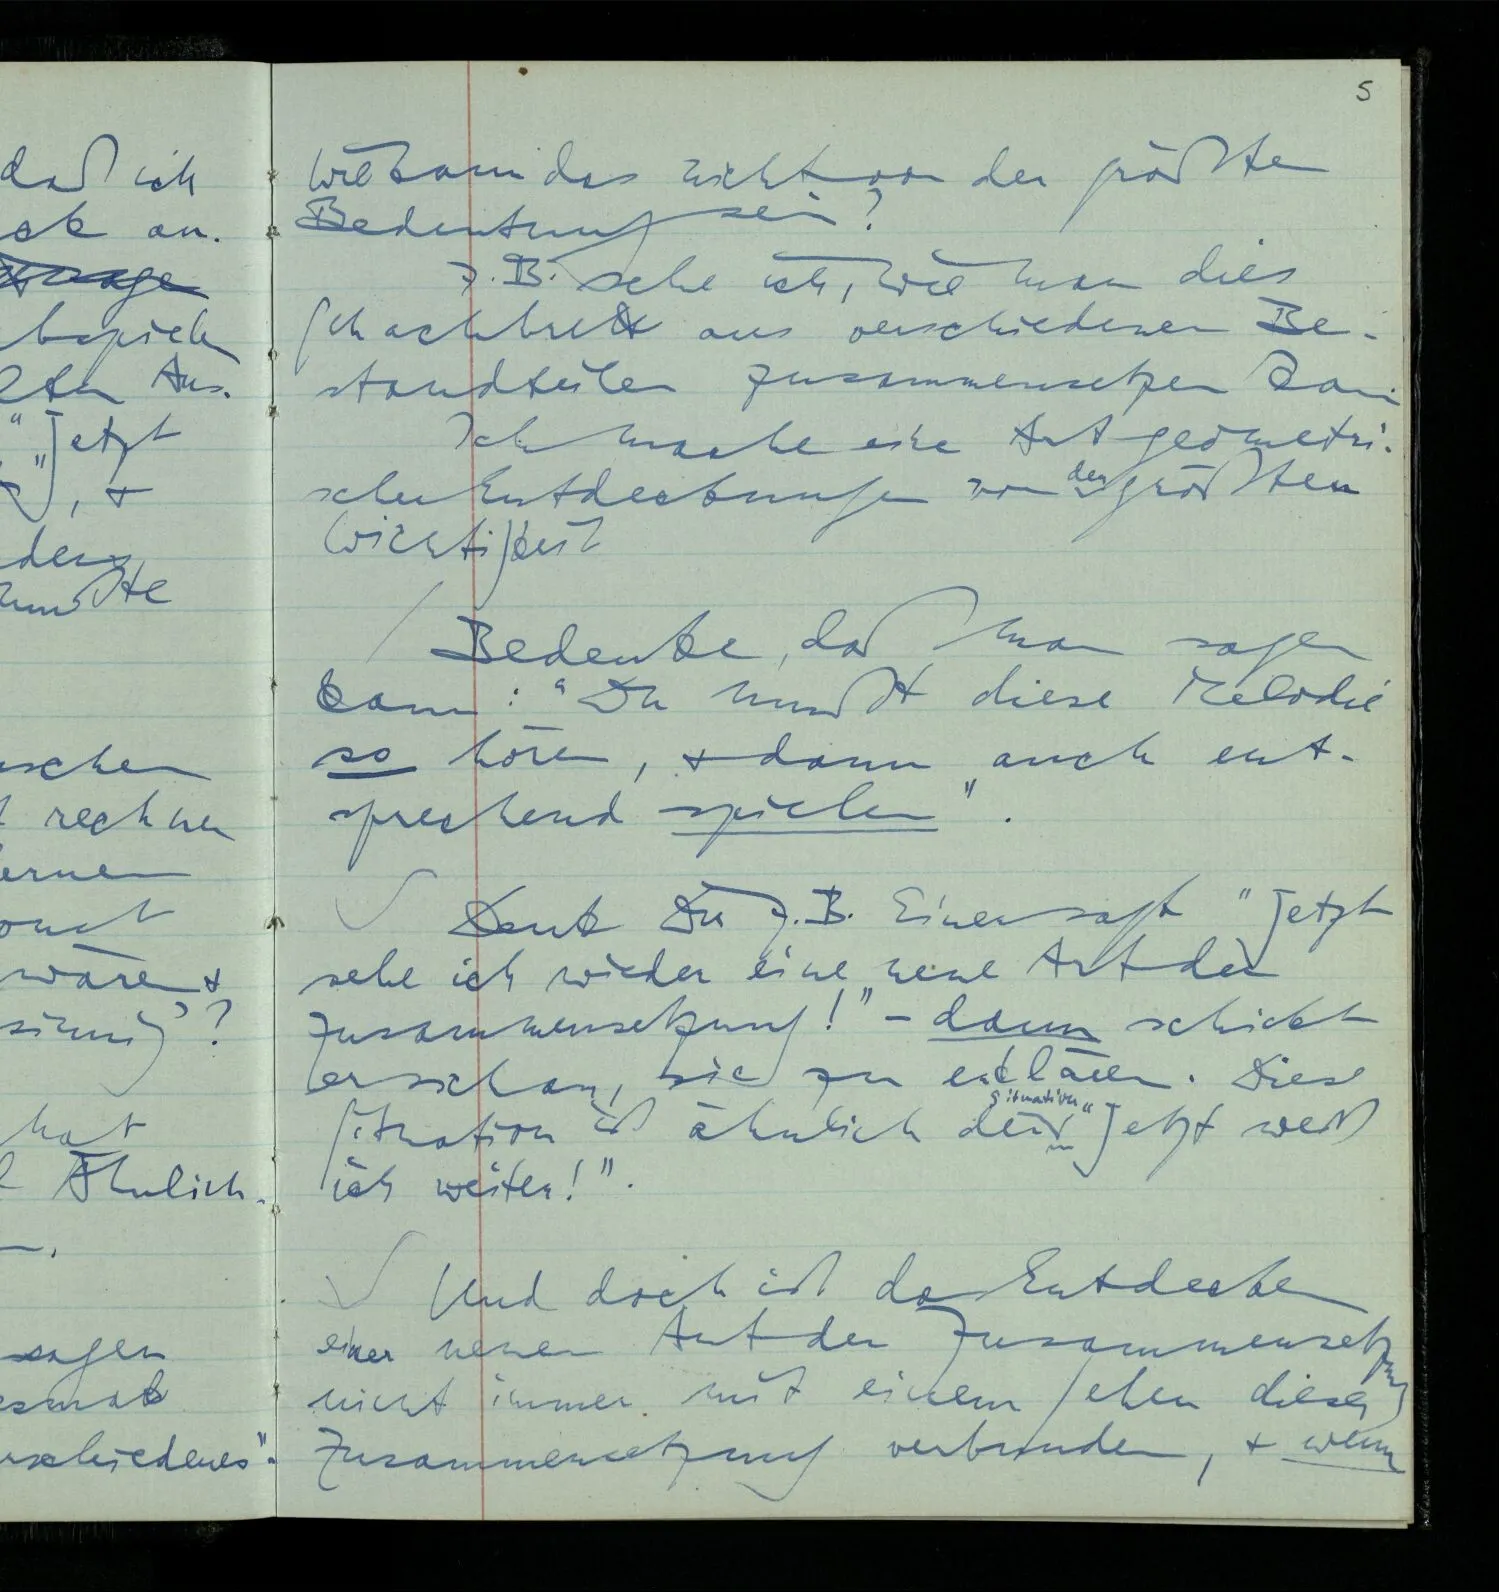 daß ich
an.
Jetzt
rechnen
wäre &
?
hat
Ähnlich-
sagen
5
Wie kann das nicht von der größten
Bedeutung sein?
Z.B. sehe ich, wie man dies
Schachbrett aus verschiedenen Be-
standteilen zusammensetzen kann
Ich mache eine Art geometri-
scher Entdeckungen von der größten
Wichtigkeit
/ Bedenke, daß man sagen
kann: "Du mußt diese Melodie
so hören, & dann auch ent-
sprechend spielen".
✓ Denk Dir z.B. Einer sagt "Jetzt
sehe ich wieder eine neue Art der
Zusammensetzung!" – dann schickt
er sich an, sie zu erklären. Diese
Situation ist ähnlich der Situation "Jetzt weiß
ich weiter!".
✓ Und doch ist das Entdecken
einer neuen Art der Zusammensetzung
nicht immer mit einem Sehen dieser
Zusammensetzung verbunden, & wenn